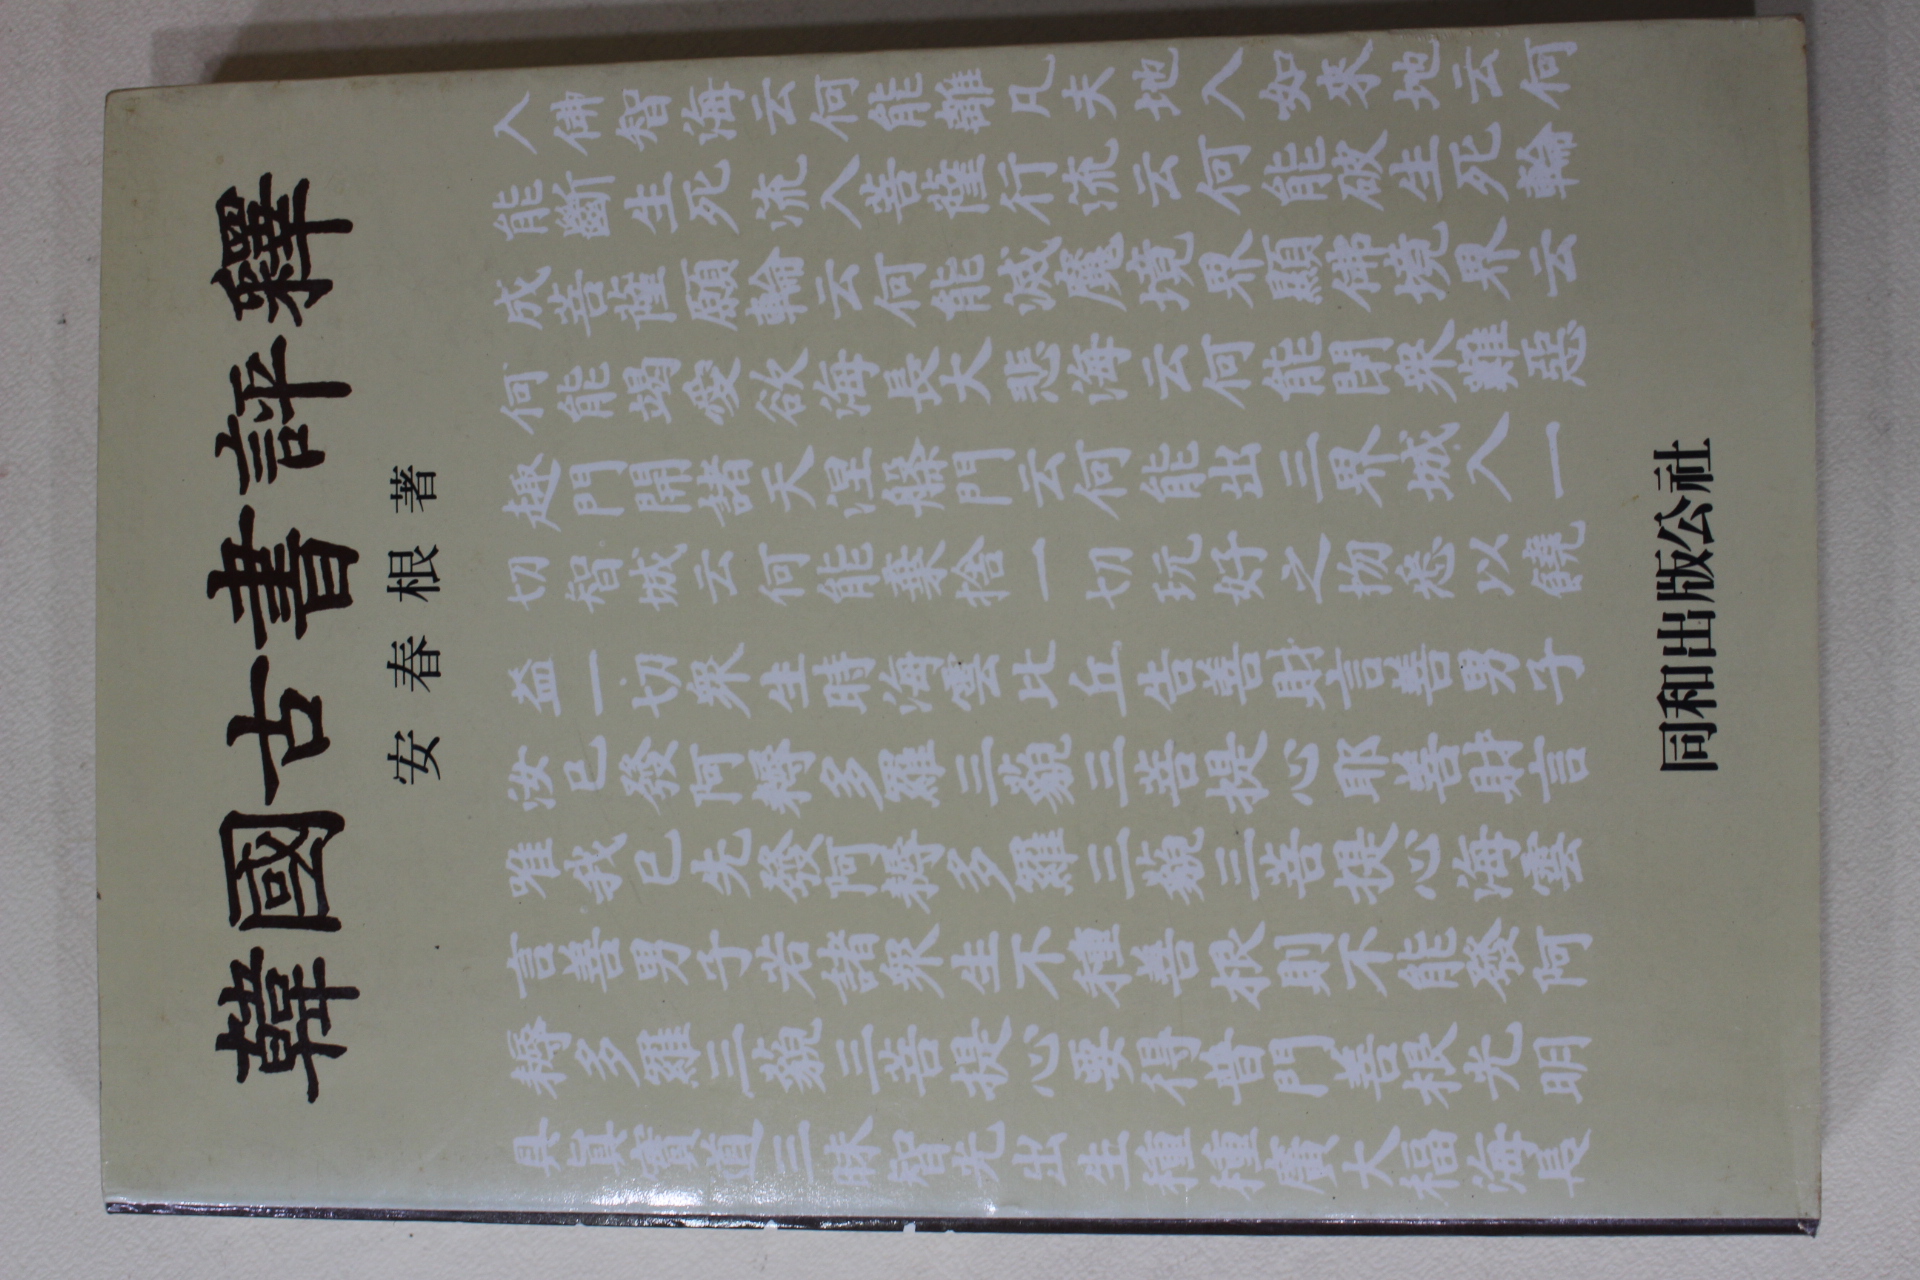 韓國古書評釋
安春根 著
入佛智海云何能離凡夫地入如來地云何
能斷生死流入菩薩行流云何能破生死輪
成菩薩願輪云何能滅魔境界顯佛境界云
何能竭愛欲海長大悲海云何能閉衆難惡
趣門開諸天涅槃門云何能出三界城入一
切智城云何能棄捨一切玩好之物悉以饒
益一切衆生時海雲比丘告善財言善男子
汝已發阿耨多羅三藐三菩提心耶善財言
唯我已先發阿耨多羅三藐三菩提心海雲
言善男子若諸衆生不種善根則不能發阿
耨多羅三藐三菩提心要得普門善根光明
具眞實道三昧智光出生種種廣大福海長
同和出版公社